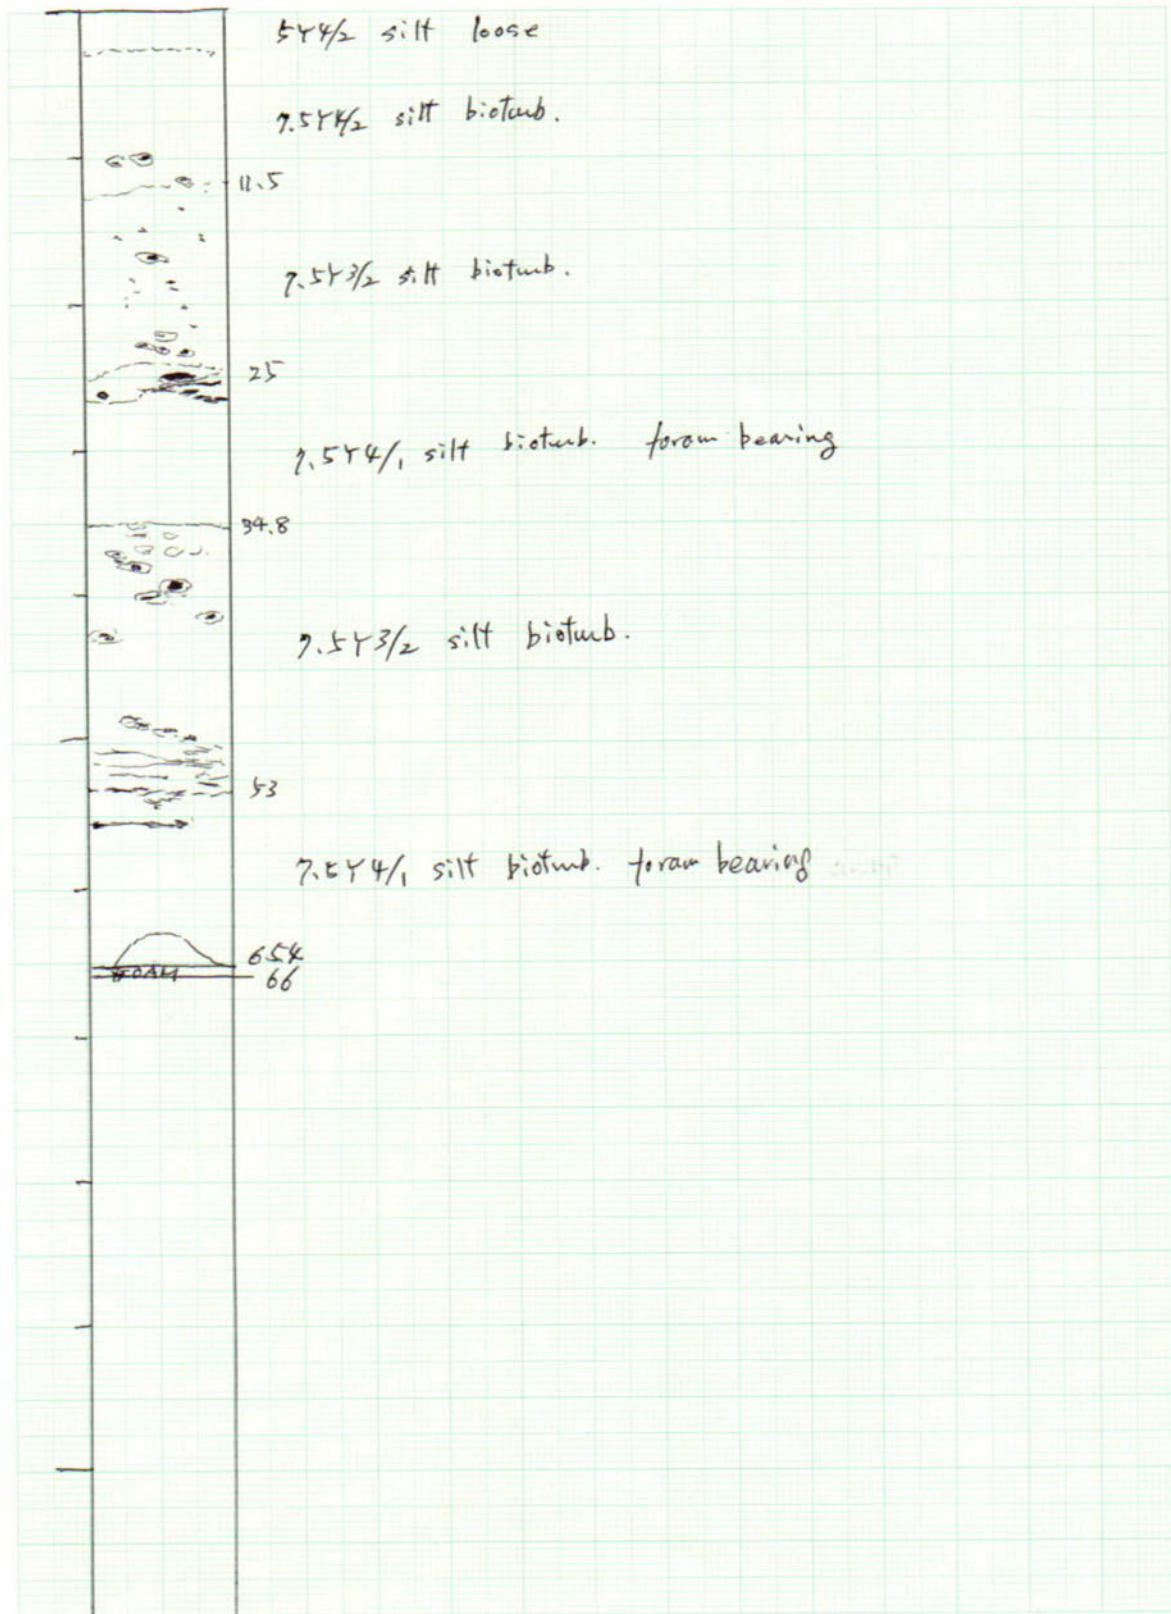 5Y4/2 silt loose
7.5Y4/2 silt bioturb.
11.5
7.5Y3/2 silt bioturb.
25
7.5Y4/1 silt bioturb. foram bearing
34.8
7.5Y3/2 silt bioturb.
53
7.5Y4/1 silt bioturb. foram bearing
65.4
FOAM
66